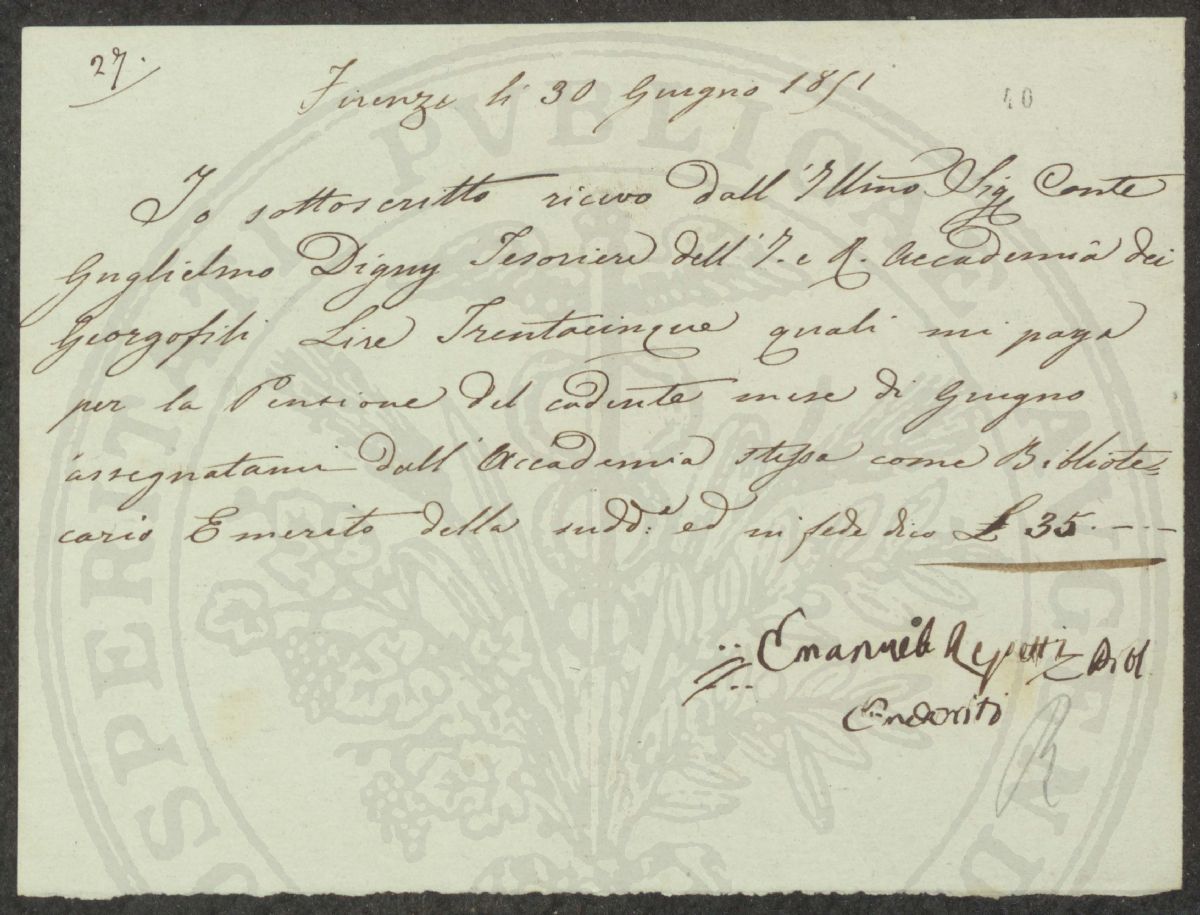 27.
Firenze li 30 Giugno 1851
40
Io sottoscritto ricevo dall'Illmo Sig Conte
Guglielmo Digny Tesoriere dell'I. e R. Accademia dei
Georgofili Lire Trentacinque quali mi paga
per la Pensione del cadente mese di Giugno
assegnatami dall'Accademia stessa come Bibliote=
cario Emerito della sudd.a ed in fede dico £ 35.---
Emanuele Repetti Bibl
R
PROSPERITATI PVBLICAE AVGENDAE